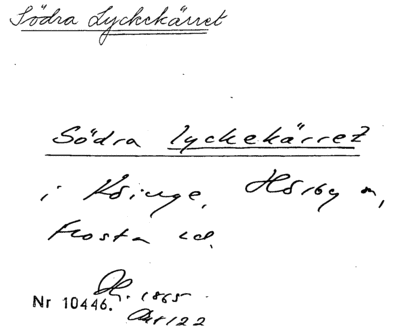 Södra Lyckekärret
Södra Lyckekärret
i Köinge, Hörby s,
Frosta hd.
1865
Nr 10446.
122